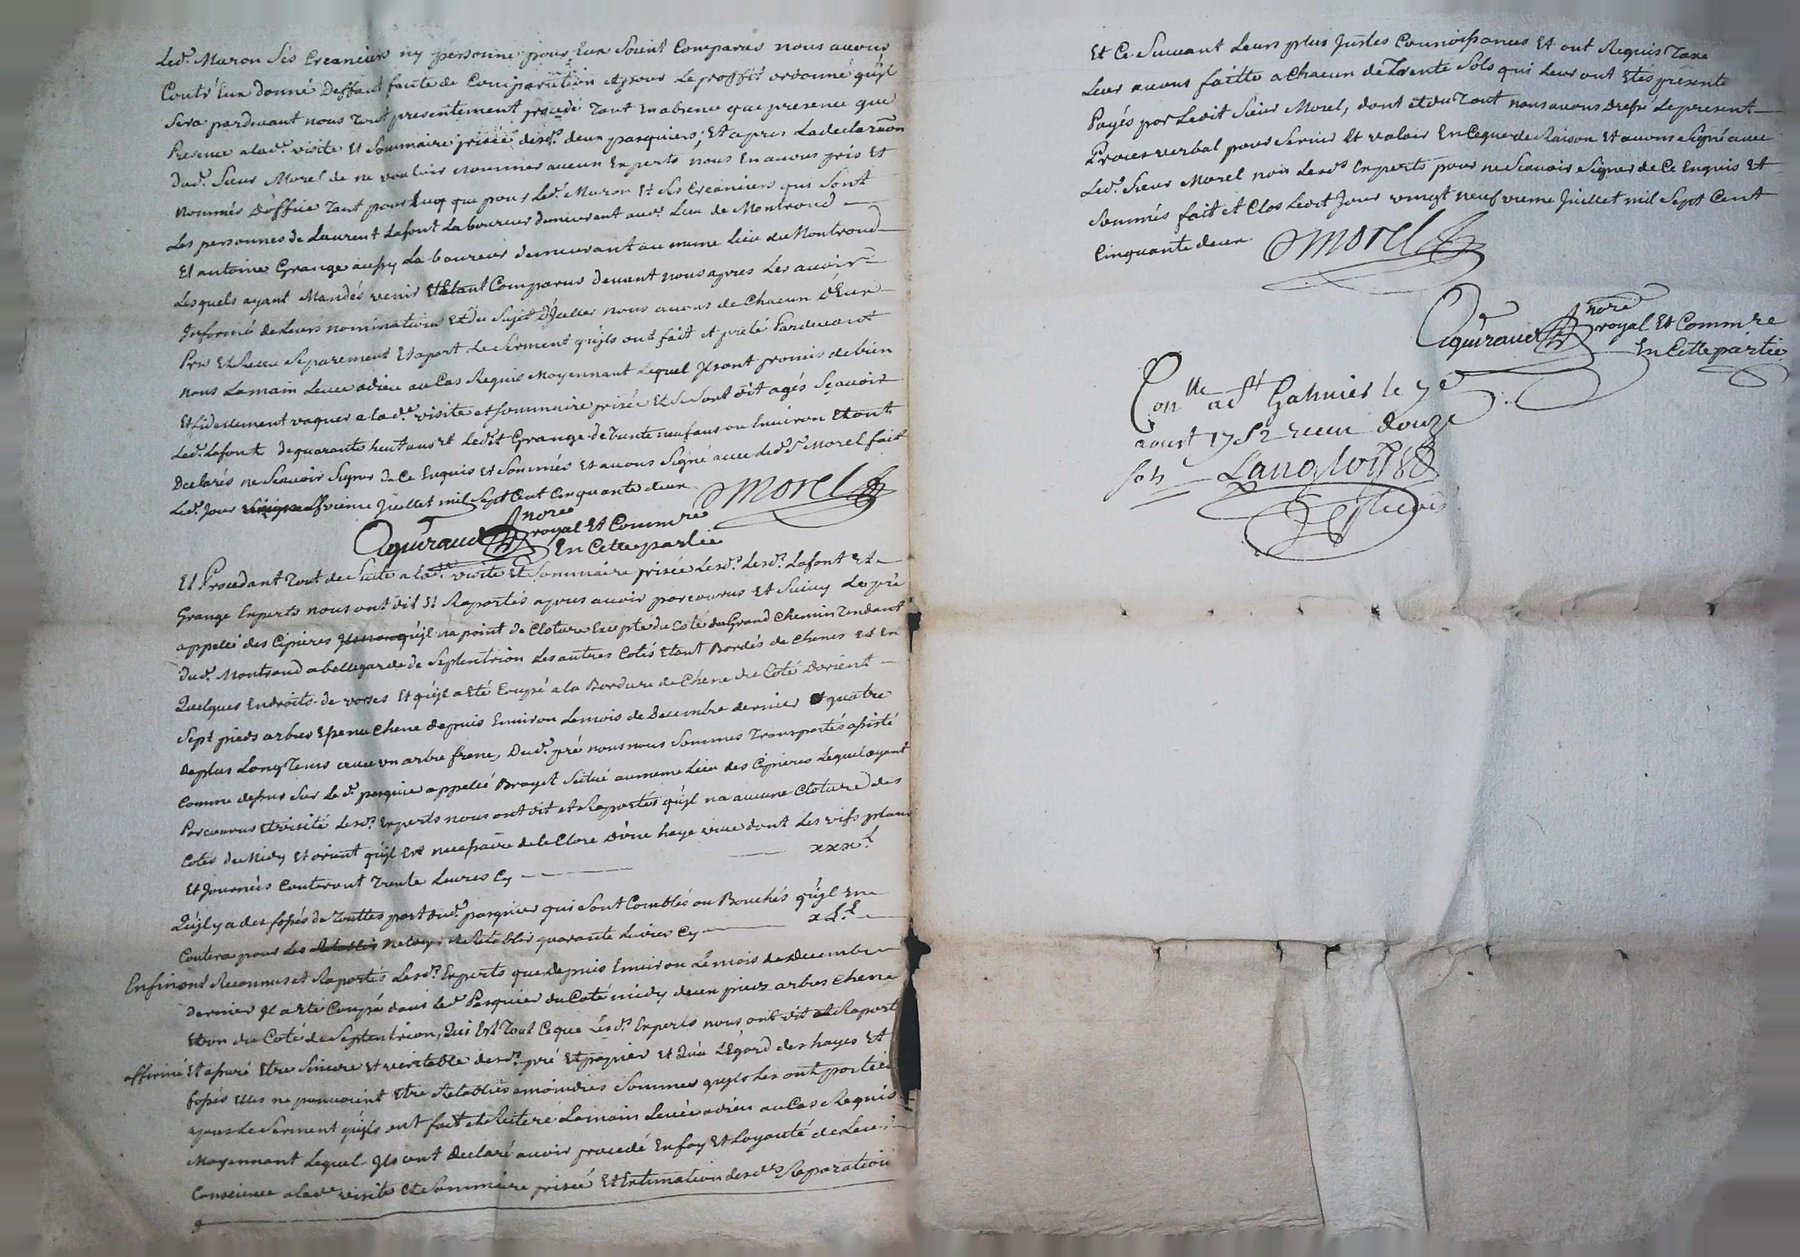 Led. Muron Ses Creanciers ny personne pour Eux Soient Comparus nous avons
Contr'Eux donné Deffaut faute de Comparution et pour Le proffit ordonné qu'yl
Sera pardevant nous Tout presentement procedé Tant En absence que presence que
Presence alad. visite Et Sommaire prisée desd. deux pasquiers, Et apres La declaraõn
Dud. Sieur Morel de ne vouloir nommer aucun Experts nous En avons pris Et
nommés D'office Tant pour Luy que pour Led. Muron Et Ses Creanciers qui Sont
Les personnes de Laurent Lafont Laboureur demeurant aud. Lieu de Montrond
Et antoine Grange aussy Laboureur demeurant au meme Lieu de Montrond
Lesquels ayant Mandés venir Etant Comparus devant nous apres Les avoir
Informé de Leurs nomination Et du Sujet D'Icelles nous avons de Chacun D'Eux
Pris Et Receu Separement Et apart Le Serment qu'yls ont fait et preté Pardevant
nous Lamain Levée adieu au Cas Requis Moyennant Lequel Ils ont promis de bien
Et fidellement vaquer alad. visite et Sommaire prisée Et Se Sont dit agés Sçavoir
Led. Lafont de quarante huit ans et Ledit Grange de Trente neuf ans ou Environ Et ont
Declarés ne Sçavoir Signer de Ce Enquis et Sommés Et avons Signé avec Led. Sr Morel fait
Led. Jour vingt neufvieme Juillet mil Sept Cent Cinquante deux Morel
Aguiraud nore royal Et Commre
En Cette partie
Et Procedant Tout de Suite alad. visite Et Sommaire prisée Lesd. Lesd. Lafont Et
Grange Experts nous ont dit Et Raportés apres avoir parcourus Et Suivy Le pré
appellé des Cipieres qu'yl n'a point de Cloture Excepté du Coté du Grand Chemin Tendant
Dud. Montrond abellegarde de Septentrion Les autres Cotés Etant Bordés de Chenes Et En
Quelques Endroits de vorses Et qu'yl a Eté Coupé a la Bordure de Chene du Coté D'orient
Sept pieds arbres Chene depuis Environ Lemois de Decembre dernier Et quatre
de plus Long Tems avec un arbre frene, Dud. pré nous nous Sommes Transportés assisté
Comme dessus Sur Led. pasquier appellé Brayet Scitué au meme Lieu des Cipieres Lequel ayant
Parcourus Et visité Lesd. Experts nous ont dit et Raportés qu'yl n'a aucune Cloture des
Cotés de Midy Et orient qu'yl Est necessaire de le Clore D'une haye vive dont Les vifs plans
Et Journées Couteront Trente Livres Cy xxx l.
Qu'yl y a des fossés de Touttes part dud. pasquier qui Sont Comblés ou Bouchés qu'yl En
Coutera pour Les netoyer Et Retablir quarante Livres Cy xL l.
Enfin ont Reconnus et Raportés Lesd. Experts que depuis Environ Lemois de Decembre
dernier Il a Eté Coupé dans Led. Pasquier du Coté midy deux pieds arbres Chene
Et un du Coté de Septentrion, Qui Est Tout Ce que Lesd. Experts nous ont dit Raport
affirmé Et assuré Etre Sincere et veritable desd. pré Et paquier Et Qu'a L'Egard des hayes Et
fossés Elles ne pouvoient Etre Retablies a moindres Sommes qu'yls Les ont portées
apres Le Serment qu'yls ont fait et Reiteré Lamain Levée adieu au Cas Requis
Moyennant Lequel Ils ont Declaré avoir procedé En foy Et Loyauté de Leur
Conscience alad. visite Et Sommaire prisée Et Estimation desd. Reparation
Et Ce Suivant Leurs plus Justes Connoissances Et ont Requis Taxe
Leur avons faitte a Chacun de Trente Sols qui Leur ont Etés présente
Payés par Ledit Sieur Morel, dont et du Tout nous avons dressé Le present
Proces verbal pour Servir Et valoir En Ce que de Raison Et avons Signé avec
Led. Sieur Morel non Lesd. Experts pour ne Scavoir Signer de Ce Enquis Et
Sommés fait et Clos Ledit Jour vingt neufvieme Juillet mil Sept Cent
Cinquante deux Morel
Aguiraud nore royal Et Commre
En Cette partie
Conlle a St Galmier le 7e
aoust 1752 receu douze
sols Langlois